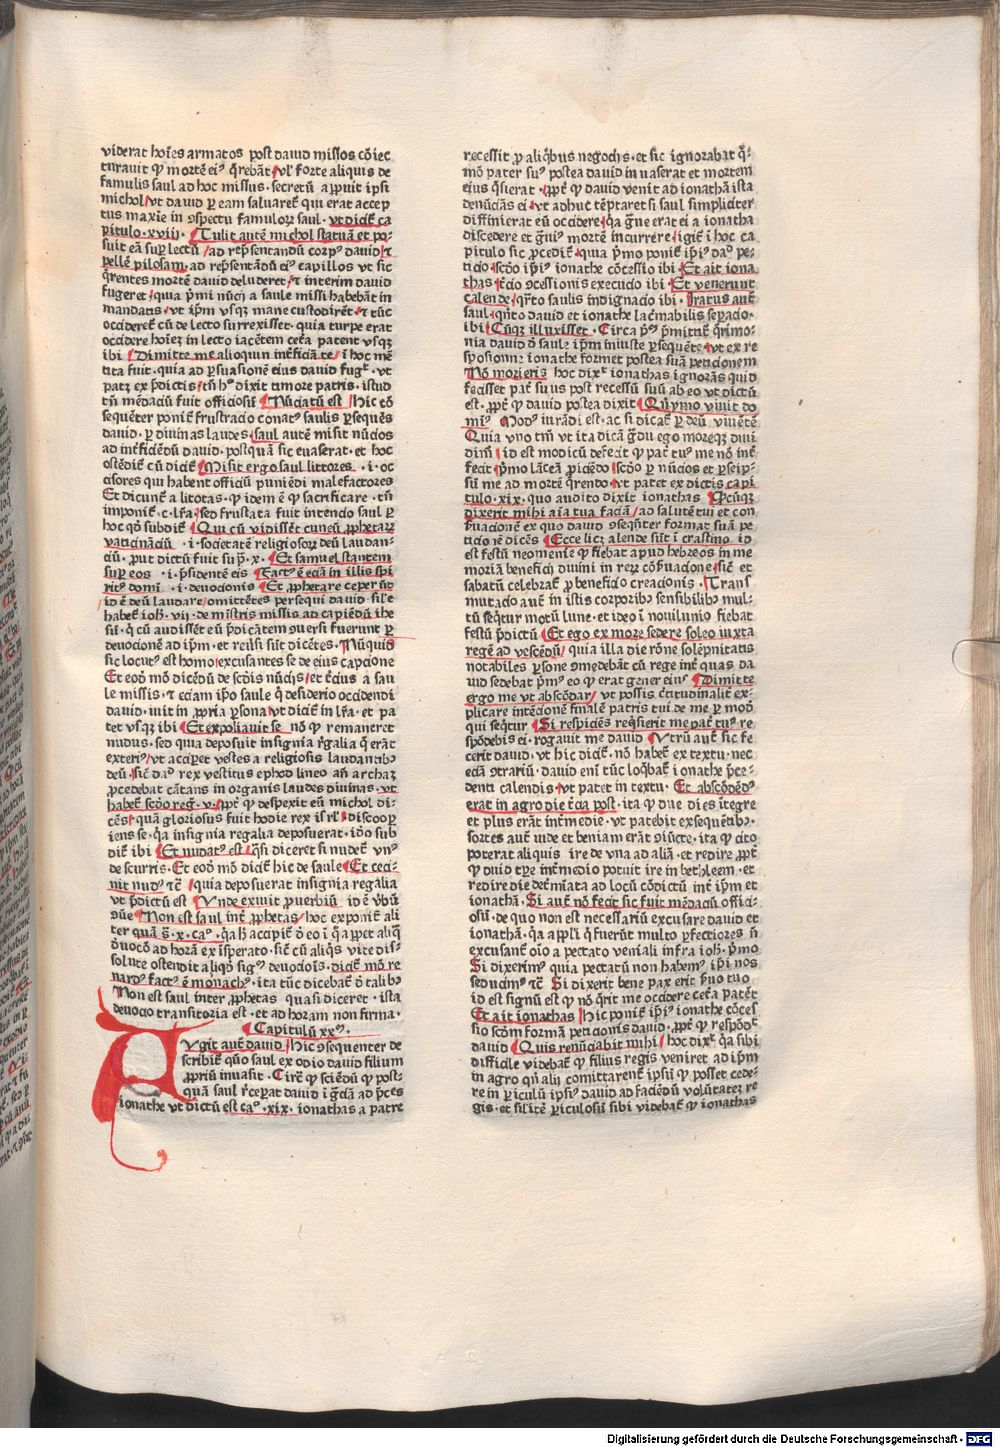 viderat hoīes armatos post dauid missos cōiec
turauit ꝙ mortē eiꝰ q̄rebāt vl' forte aliquis de
famulis saul ad hoc missus. secretū aꝑuit ipsi
michol vt dauid ꝑ eam saluaret qui erat accep
tus maxīe in ꝯspectu famuloꝝ saul. vt dicit̄ ca
pitulo. xviij. Tulit autē michol statuā et po⸗
suit eā suꝑ lectū / ad rep̄sentandū corpꝰ dauid / ⁊
pellē pilosam. ad rep̄sentādū eiꝰ capillos vt sic
q̄rentes mortē dauid deluderet / ⁊ interim dauid
fugeret / quia p̄mi nūcij a saule missi habebāt in
mandatis / vt ip̄m vsqꝫ mane custodirēt. ⁊ tūc
occideret̄ cū de lecto surrexisset. quia turpe erat
occidere hoīeꝫ in lecto iacētem cet̄a patent vsqꝫ
ibi Dimitte me alioquin int̄ficiā te / i hoc mē
tita fuit. quia ad ꝑsuasionē eius dauid fugit. vt
patꝫ ex p̄dictis / tn̄ hͦ dixit timore patris. istud
tn̄ mēdaciū fuit officiosū Nūciatū est Hic cō
sequēter ponit̄ frustracio conatꝰ saulis ꝑsequēs
dauid. ꝑ diuinas laudes / saul autē misit nūcios
ad int̄ficiēdū dauid. postquā sic euaserat. et hoc
ostēdit̄ cū dicit̄ Misit ergo saul lictores. .i. oc
cisores qui habent officiū puniēdi malefactores
Et dicunt̄ a litotas. ꝙ idem ē ꝙ sacrificare. tn̄
imponit̄. c. lr̄a / sed frustata fuit intencio saul ꝑ
hoc qd̓ subdit̄ Qui cū vidissēt cuneū ꝓphetaꝝ
vaticināciū .i. societatē religiosoꝝ deū laudan⸗
ciū. ꝓut dictū fuit sup̄. x. Et samuel stantem
suꝑ eos .i. p̄sidentē eis Factꝰ ē eciā in illis spi
ritꝰ domī .i. deuocionis Et ꝓphetare ceperūt
id ē deū laudare / omittētes persequi dauid. sil'e
habet̄ ioħ. vij. de mīstris missis ad capiēdū ihe
sū. qͥ cū audissēt eū p̄dicātem ꝯuersi fuerunt ꝑ
deuocionē ad ip̄m. et reu̓si sūt dicētes. Nūquid
sic locutꝰ est homo / excusantes se de eius capcione
Et eod̓ mō dicēdū de scd̓is nūcijs / et t̓cius a sau
le missis. ⁊ eciam ip̄o saule qͥ desiderio occidendi
dauid. iuit in ꝓpria ꝑsona vt dicit̄ in lr̄a. et pa
tet vsqꝫ ibi Et expoliauit se nō ꝙ remaneret
nudus. sed quia deposuit insignia r̄galia q̄ erāt
exteriꝰ / vt acciꝑet vestes a religiosis laudantibꝰ
deū. sic̄ dd̓ rex vestitus ephod lineo an̄ archaꝫ
ꝓcedebat cātans in organis laudes diuinas. vt
habet̄ scd̓o reg̓. v. ꝓpt̓ qd̓ despexit eū michol di⸗
cēs quā gloriosus fuit hodie rex isrl' discooꝑ
iens se. qa insignia regalia deposuerat. id̓o sub
dit̄ ibi Et nudatꝰ est qͣsi diceret si nudet̄ vnꝰ
de scurris. Et eod̓ mō dicit̄ hic de saule Et ceci⸗
nit nudꝰ ⁊c̄ / quia deposuerat insignia regalia
vt p̄dictū est Vnde exiuit ꝓuerbiū id ē v̓bū
ꝯūe Non est saul int̓ ꝓphetas / hoc exponit̄ ali
ter quā s̄. x. caͦ. qa ħ accipit̄ d̓ eo ī qͦ aꝑpet aliqͣ
d̓uocō ad horā ex isperato. sic̄ cū aliqͥs vite dis⸗
solute ostendit aliqd̓ sigꝰ deuocioīs. dicit̄ mō re
nardꝰ factꝰ ē monachꝰ. ita tūc dicebat̄ d̓ talibꝰ
Non est saul inter ꝓphetas quasi diceret. ista
deuocio transitoria est. et ad horam non firma.
Capitulū xxᵐ.
Vgit aut̄ dauid Hic ꝯsequenter de
scribit̄ qūo saul ex odio dauid filium
ꝓpriū inuasit. Circa qd̓ sciēdū ꝙ post⸗
quā saul r̄ceperat dauid ī gr̄ciā ad p̄ces
ionathe vt dictū est caͦ. xix. ionathas a patre
recessit ꝓ aliqͥbus negocijs. et sic ignorabat qͦ⸗
mō pater suꝰ postea dauid inuaserat et mortem
eius q̄sierat. ꝓpt̓ qd̓ dauid venit ad ionathā ista
denūciās ei vt adhuc tēptaret si saul simpliciter
diffinierat eū occidere qa gͣue erat ei a ionatha
discedere et gͣuiꝰ mortē incurrere igit̄ ī hoc ca
pitulo sic ꝓcedit̄ quia p̄mo ponit̄ ip̄iꝰ dauid pe⸗
ticio / scd̓o ip̄iꝰ ionathe cōcessio ibi Et ait iona
thas t̓cio ꝯcessionis execucio ibi Et venerunt
calende qͣrto saulis indignacio ibi. Iratus aut̄
saul. qͥnto dauid et ionathe lacͥmabilis sepacio.
ibi Cūqꝫ illuxisset. Circa p̄ᵐ p̄mittit̄ qͥrimo⸗
nia dauid d̓ saule ip̄m iniuste ꝑsequēte vt ex re
sposione ionathe formet postea suā peticionem
Nō morieris hoc dixit ionathas ignorās quid
fecisset pat̓ suus post recessū suū ab eo vt dictū
est. ꝓpt̓ qd̓ dauid postea dixit Qn̄ymo viuit do
minꝰ Modꝰ iurādi est. ac si dicat̄ ꝑ deū viuētē
Quia vno tm̄ vt ita dicā gͣdu ego morsqꝫ diui
dim̄ id est modicū defecit qd̓ pat̓ tuꝰ me nō int̓
fecit p̄mo lācea ꝓiciēdo scd̓o ꝑ nūcios et ꝑseip⸗
sū me ad mortē q̄rendo vt patet ex dictis capi
tulo. xix. quo audito dixit ionathas Qd̓cūqꝫ
dixerit mihi aīa tua faciā / ad salutē tui et con
s̓uacionē ex quo dauid ꝯseqn̄ter format suā pe
ticionē dicēs Ecce licꝫ alende sūt ī crastino id
est festū neomenie qd̓ fiebat apud hebreos in me
moriā beneficij diuini in reꝝ cōs̓uacione sic̄ et
sabatū celebrat̄ ꝓ beneficio creacionis Trans
mutacio aut̄ in istis corporibꝰ sensibilibꝰ mul⸗
tū seqͥtur motū lune. et ideo ī nouilunio fiebat
festū p̄dictū Et ego ex more sedere soleo iuxta
regē ad vescēdū / quia illa die rōne solēpnitatis
notabiles ꝑsone ꝯmedebāt cū rege int̓ quas da
uid sedebat p̄mꝰ eo ꝙ erat gener eius Dimitte
ergo me vt abscōdar / vt possis c̓titudinalit̓ ex⸗
plicare intēcionē finalē patris tui de me ꝑ modū
qui seqͥtur Si respiciēs reqͥsierit me pat̓ tuꝰ re
spōdebis ei. rogauit me dauid Vtrū aut̄ sic fe
cerit dauid. vt hic dicit̄. nō habet̄ ex textu. nec
eciā ꝯtrariū. dauid enī tūc loqͥbat̄ ionathe p̄ce⸗
denti calendis vt patet in textu. Et abscōdēdꝰ
erat in agro die t̓cia post. ita ꝙ due dies ītegre
et plus erāt int̓medie. vt patebit ex sequētibꝰ.
fortes aut̄ vide et beniam erāt ꝯiūcte. ita ꝙ cito
poterat aliquis ire de vna ad aliā. et redire ꝓpt̓
qd̓ dauid tꝑe int̓medio potuit ire in bethleem. et
redire die det̓mīata ad locū cōdictū int̓ ip̄m et
ionathā. Si aut̄ nō fecit sic fuit mēdaciū offici⸗
osū. de quo non est necessariū excusare dauid et
ionathā. qa apl'i qͥ fuerūt multo ꝑfectiores n̄
excusant̄ oīo a peccato veniali infra ioħ. p̄mo
Si dixerimꝰ quia pectatū non habemꝰ ip̄i nos
seducimꝰ ⁊c̄ Si dixerit bene pax erit s̓uo tuo
id est signū est ꝙ nō q̄rit me occidere cet̄a patēt
Et ait ionathas Hic ponit̄ ip̄iꝰ ionathe cōces
sio scd̓m formā peticionis dauid. ꝓpt̓ qd̓ respōdit
dauid Quis renūciabit mihi / hoc dixit qa sibi
difficile videbat̄ ꝙ filius regis veniret ad ip̄m
in agro qn̄ alij comittarent̄ ipsū ꝙ posset cede⸗
re in ꝑiculū ipsiꝰ dauid ad faciēdū volūtatē re
gis. et silit̓ē ꝑiculosū sibi videbat̄ ꝙ ionathas
Digitalisierung gefördert durch die Deutsche Forschungsgemeinschaft - DFG